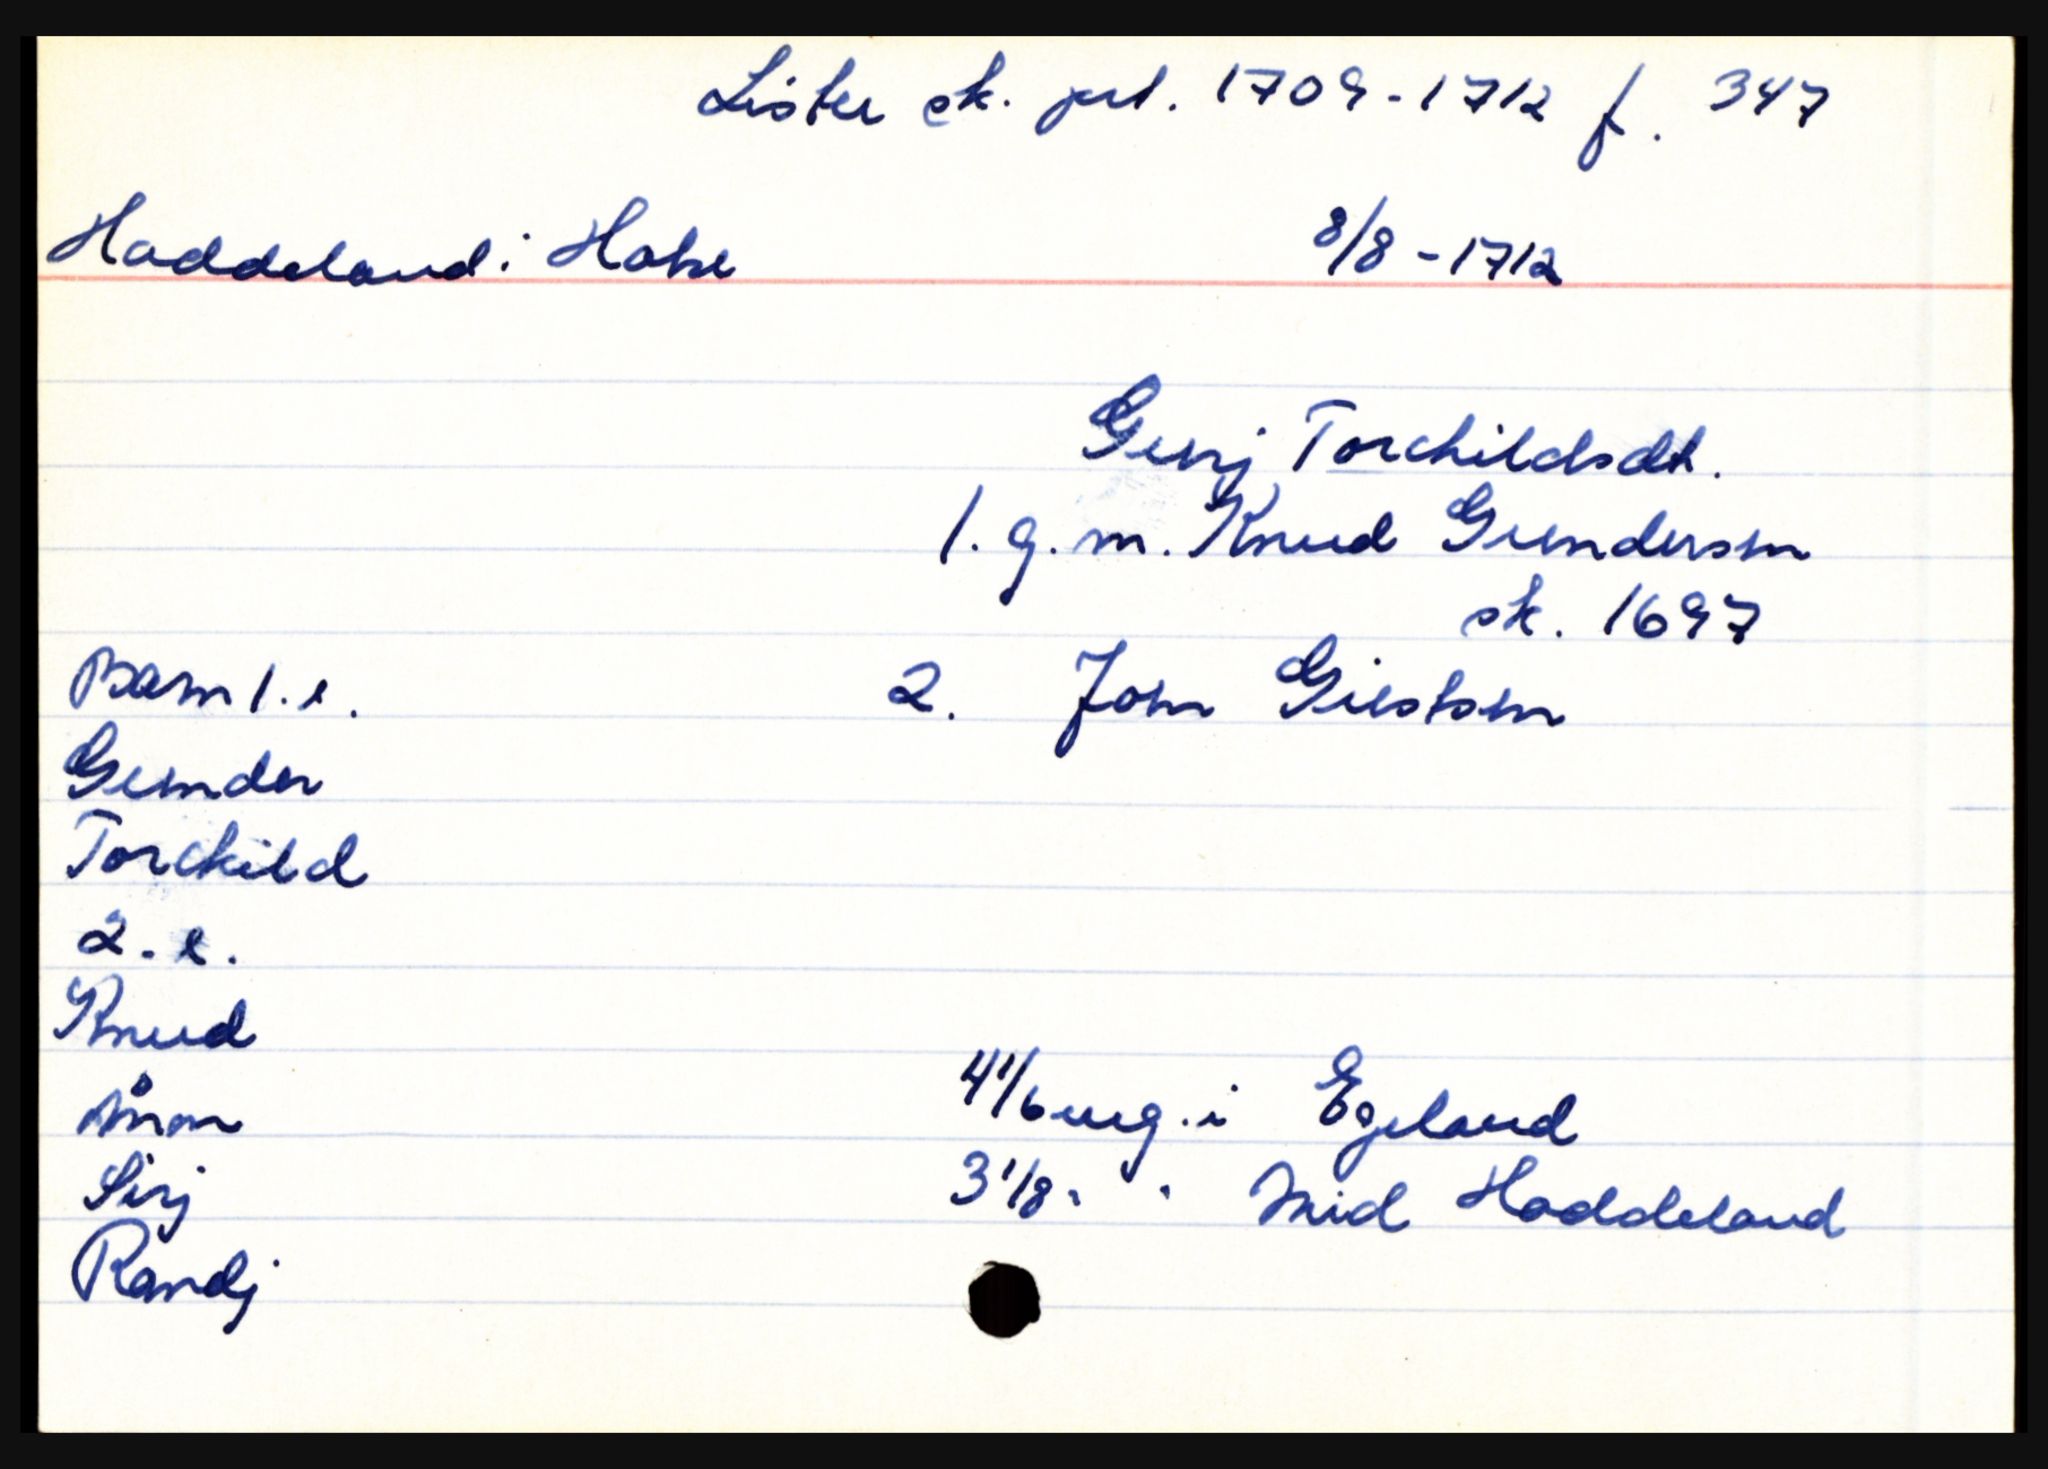 Lister sk. prt. 1709-1712 f. 347
Haddeland i Hakse 8/8 - 1712
Gurj Torchildsdt.
1. g. m. Knud Gundersen
sk. 1697
Barn 1. e. 2. John Giestsen
Gunder
Torchild
2. e.
Knud
Ånon 4 1/6 eng. i Egeland
Sirj 3 1/8 " " Mid Haddeland
Randj